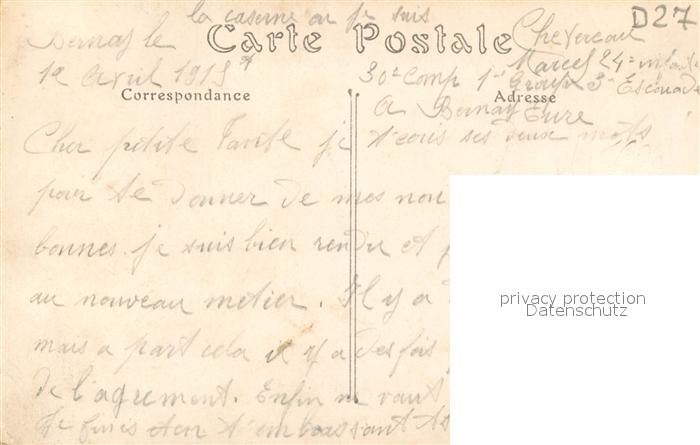 la caserne ou je suis
D27
Bernay le
Carte Postale
Chevereau
12 Avril 1915
Marcel 24e
30e Comp 1er Groupe 3e Escouade
Correspondance
Adresse
a Bernay Eure
Cher petite Tante je t'ecris ses deux mots
pour te donner de mes nou
bonnes. je suis bien rendu et
au nouveau metier. Il y a
mais a part cela il y a des fois
de l'agrement. Enfin
Je finis en t'embrassant
privacy protection
Datenschutz